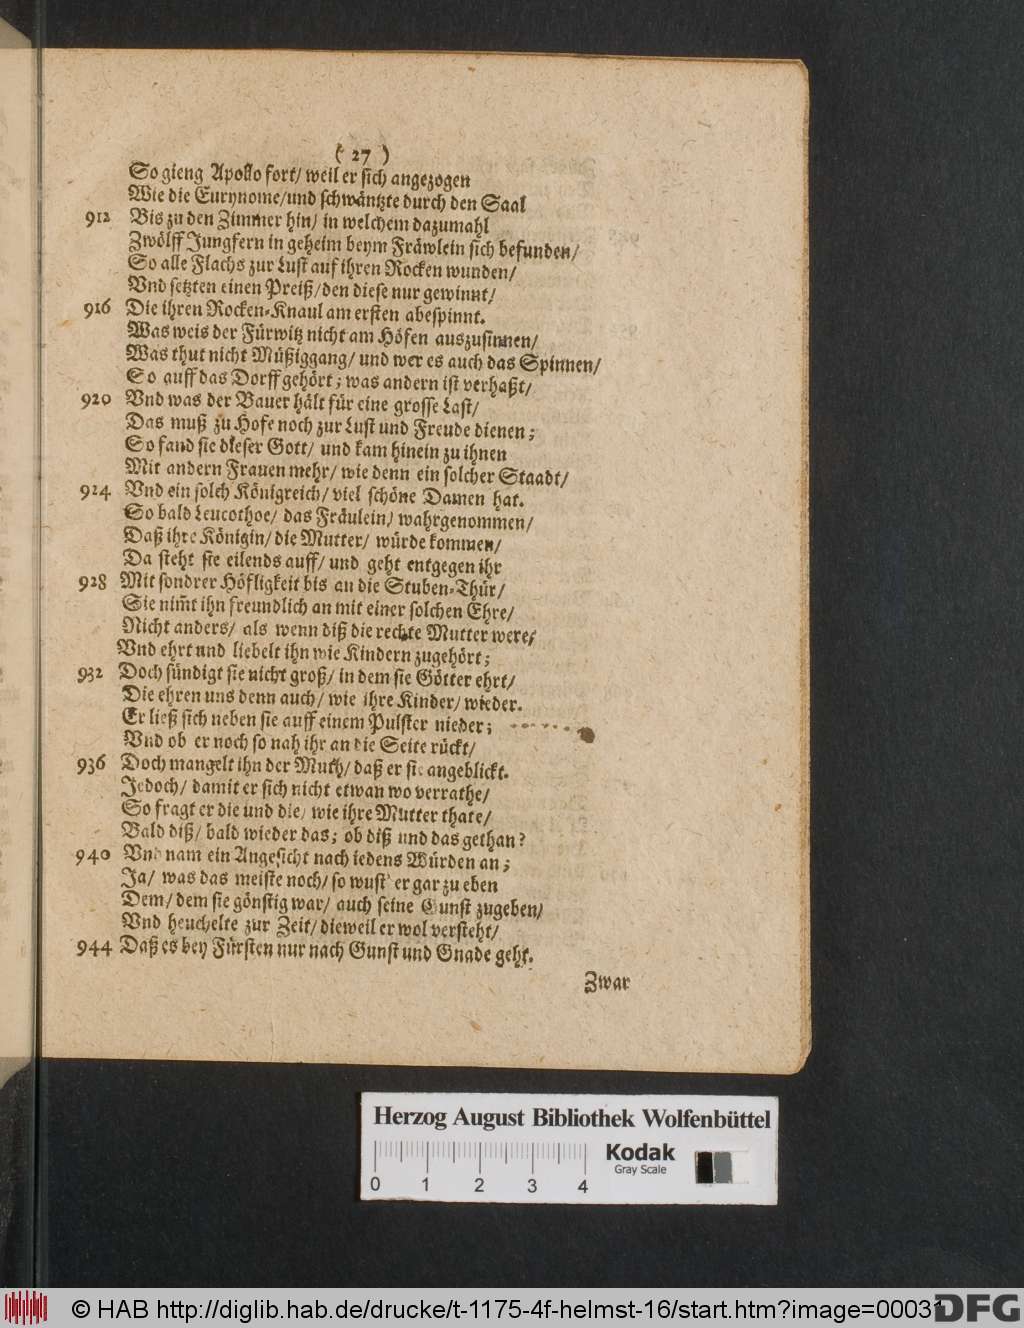 ( 27 )
So gieng Apollo fort/ weil er sich angezogen
Wie die Eurynome/und schwäntzte durch den Saal
912 Bis zu den Zimmer hin/ in welchem dazumahl
Zwölff Jungfern in geheim beym Fräwlein sich befunden/
So alle Flachs zur Lust auf ihren Rocken wunden/
Vnd setzten einen Preiß/den diese nur gewinnt/
916 Die ihren Rocken-Knaul am ersten abespinnt.
Was weis der Fürwitz nicht am Höfen auszusinnen/
Was thut nicht Müßiggang/ und wer es auch das Spinnen/
So auff das Dorff gehört; was andern ist verhaßt/
920 Vnd was der Bauer hält für eine grosse Last/
Das muß zu Hofe noch zur Lust und Freude dienen;
So fand sie dieser Gott/ und kam hinein zu ihnen
Mit andern Frauen mehr/ wie denn ein solcher Staadt/
924 Vnd ein solch Königreich/ viel schöne Damen hat.
So bald Leucothoe/ das Fräulein/ wahrgenommen/
Daß ihre Königin/ die Mutter/ würde kommen/
Da steht sie eilends auff/ und geht entgegen ihr
928 Mit sondrer Höfligkeit bis an die Stuben-Thür/
Sie nim̃t ihn freundlich an mit einer solchen Ehre/
Nicht anders/ als wenn diß die rechte Mutter were/
Vnd ehrt und liebelt ihn wie Kindern zugehört;
932 Doch sündigt sie nicht groß/ in dem sie Götter ehrt/
Die ehren uns denn auch/ wie ihre Kinder/ wieder.
Er ließ sich neben sie auff einem Pulster nieder;
Vnd ob er noch so nah ihr an die Seite rückt/
936 Doch mangelt ihn der Muth/ daß er sie angeblickt.
Jedoch/ damit er sich nicht etwan wo verrathe/
So fragt er die und die/ wie ihre Mutter thate/
Bald diß/ bald wieder das; ob diß und das gethan?
940 Vnd nam ein Angesicht nach iedens Würden an;
Ja/ was das meiste noch/ so wust' er gar zu eben
Dem/ dem sie gönstig war/ auch seine Gunst zugeben/
Vnd heuchelte zur Zeit/ dieweil er wol versteht/
944 Daß es bey Fürsten nur nach Gunst und Gnade geht.
Zwar
Herzog August Bibliothek Wolfenbüttel
Kodak
Gray Scale
0 1 2 3 4
© HAB http://diglib.hab.de/drucke/t-1175-4f-helmst-16/start.htm?image=00031
DFG